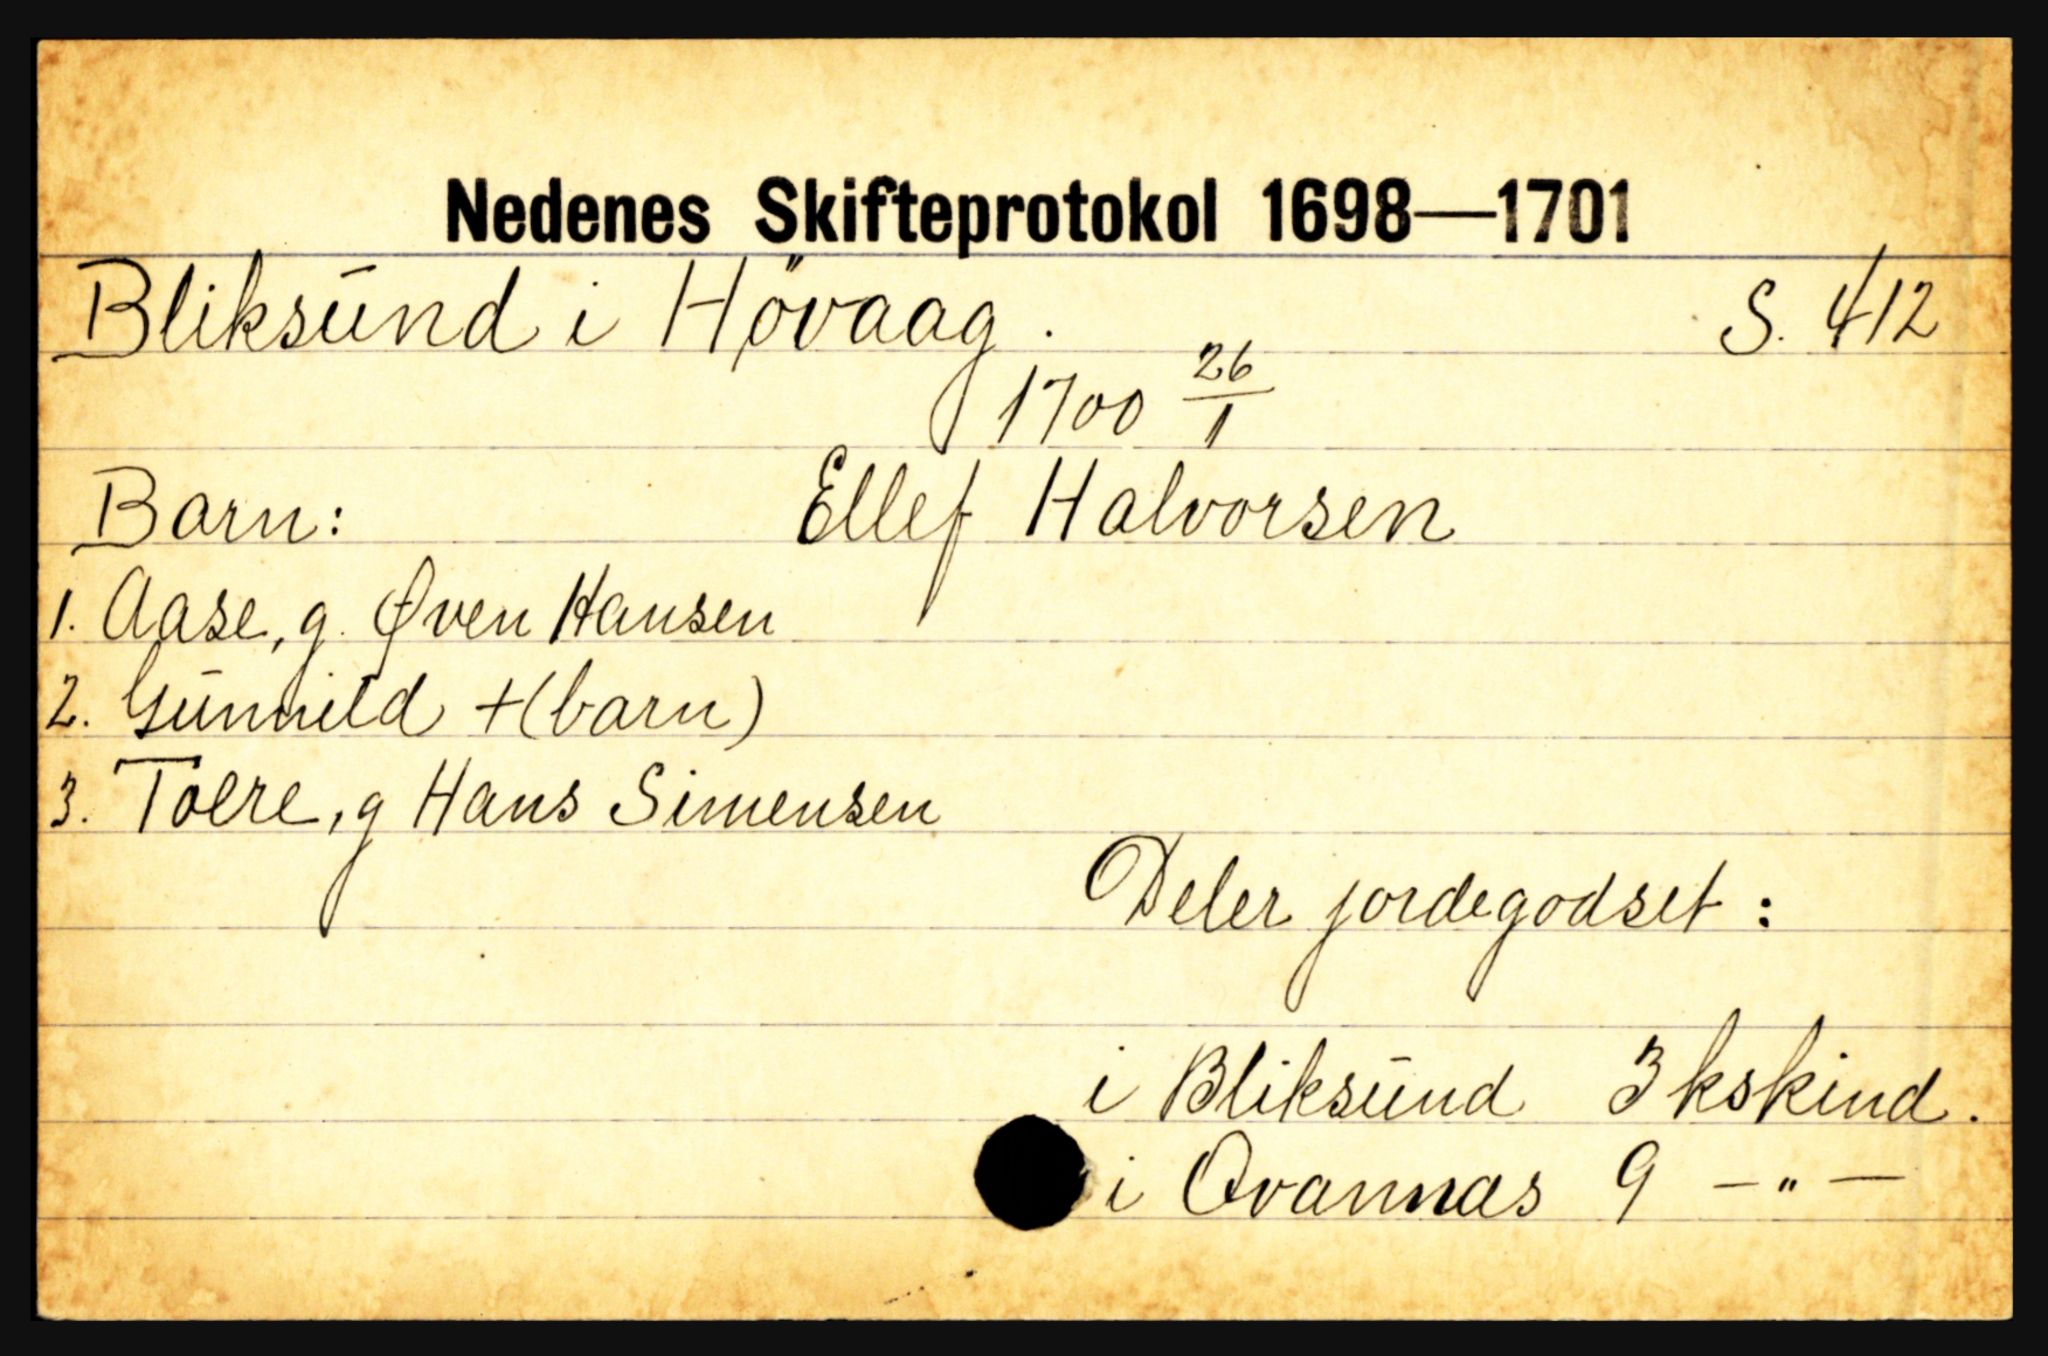 Nedenes Skifteprotokol 1698—1701
Bliksund i Hövaag. S. 412
1700 26/1
Barn: Ellef Halvorsen
1. Aase, g. Øven Hansen
2. Gunnild +(barn)
3. Tolre, g Hans Simensen
Deler jordegodset:
i Bliksund 3 kskind.
i Qvannas 9 — " —